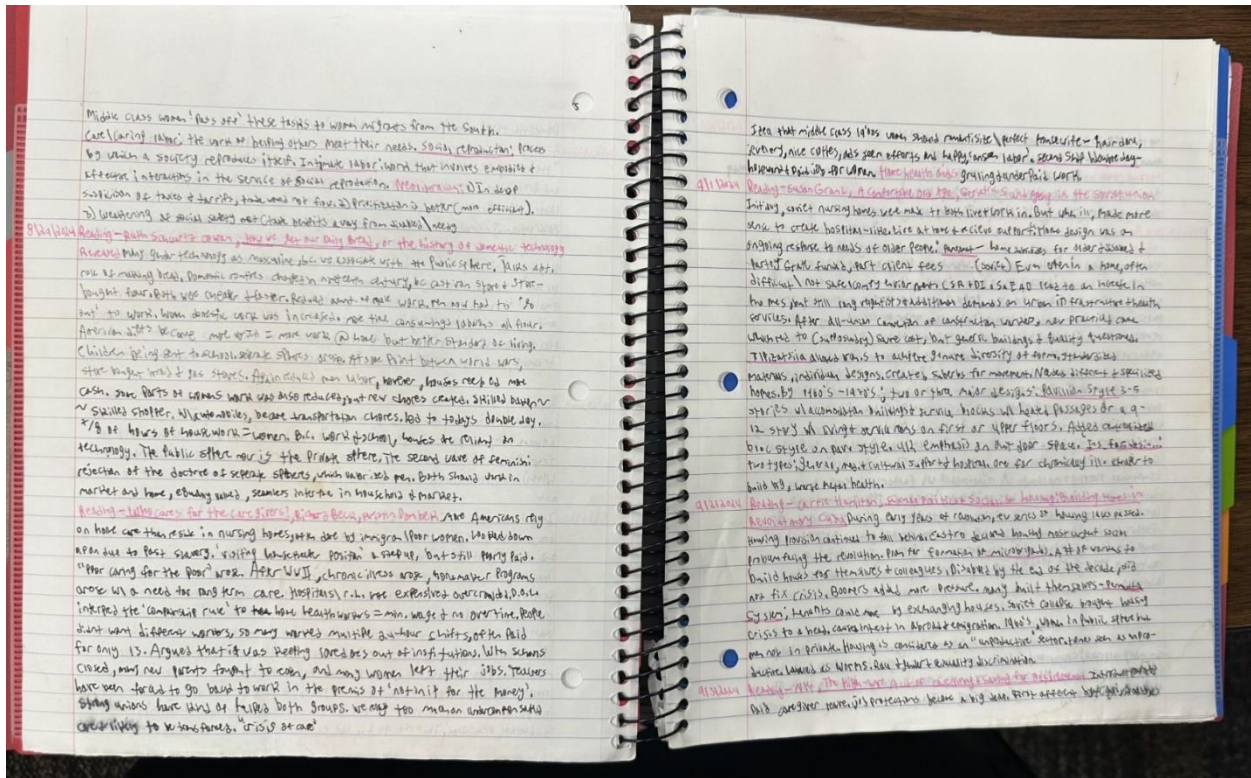 Middle class women 'pass off' these tasks to women migrants from the South.
Care/caring labor: the work of helping others meet their needs. Social reproduction: process
by which a society reproduces itself. Intimate labor: work that involves embodied &
affective interactions in the service of social reproduction. 1) In deep
suspicion of taxes & tarrifs, take well not for 2) Privitization is better (more efficient).
3) Weakening of social safety net (take benefits away from disabled/needy
8/26/2024 Reading - Ruth Schwartz Cowan, how we get our daily bread, or the history of domestic technology
Revealed Many gender technology as masculine, b/c we associate with the public sphere. Talks abt.
role of making bread. Domestic routines changed in nineteenth century, b/c cast iron stove & store-
bought flour. Both were cheaper & faster. Reduced amt. of male work. Men now had to 'go
out' to work. Women domestic work was increased, more time consuming & laborious w/ flour.
American diets became more = more work @ home but better standard of living.
Children being sent to school, separate spheres arose. At some point between world wars,
store bought bread & gas stoves. Again reduced man labor, however, houses needed more
cash. Some parts of women's work was also reduced, but new chores created. Skilled baker ~
~ skilled shopper. W/ automobiles, became transportation chores. Led to today's double day.
7/8 of hours of housework = women. B.c. work & school, homes are reliant on
technology. The public sphere now is the private sphere. The second wave of feminism:
rejection of the doctrine of seperate spheres, which valorized men. Both should work in
market and home, equally valued, seamless interface in household & market.
Reading - Who cares for the caregivers?, Richard Beck, Kristin Dombek More Americans rely
on home care than reside in nursing homes, often done by immigrant/poor women. Looked down
upon due to past slavery, 'visiting housekeeper' position a step up, but still poorly paid.
"poor caring for the poor" arose. After WWII, chronic illness arose, homemaker programs
arose w/ a need for long term care. Hospitals were expensive & overcrowded, D.O.L.
interpred the 'companionship rule' to home healthworkers = min. wage & no overtime. People
didnt want different workers, so many worked multiple 24-hour shifts, often paid
for only 13. Argued that it was keeping loved ones out of institutions. With schools
closed, many new parents fought to cope, and many women left their jobs. Teachers
have been forced to go back to work in the premise of 'not in it for the money'.
Strong unions have kind of helped both groups. We rely too much on undercompensated
care & likely to be transformed. "crisis of care"
Idea that middle class 1900s women should romanticise/perfect housewife - hair done,
nice clothes, ads seen efforts and happy. unseen labor. second shift/double day -
housework & paid jobs for women. Home health aids: grueling & underpaid work.
9/1/2024 Reading - Susan Grant, A comfortable old age, and aging in the Soviet Union
Initially, soviet nursing homes were made to both live & work in. But when ill, made more
sense to create hospital-like. Live at home & recieve support. Home design was an
ongoing response to needs of older people. home services for older disabled &
partly state funded, part client fees (soviet) Even often in a home, often
difficult/not safe/comfy environment. lead to an increase in
homes, but still long & additional demands on urban infrastructure & health
services. After all-union of construction workers, new practices came
which led to (supposedly) save cost, but generic buildings & quality questioned.
allowed ways to achieve genuine diversity of form. Standardized
materials, individual designs, created suburbs for movement. Needed different & specialized
homes. By 1960's - 1970s: two or three major designs: Pavilion style 3-5
stories w/ accomodation buildings & service blocks w/ heated passages or a 9-
12 story w/ living & service rooms on first or upper floors. Added centralized
bloc style or park style. With emphasis on outdoor space.
two types: general, medi cultural support & boarding. One for chronically ill. Cheaper to
build big, worse helps health.
9/2/2024 Reading - Carrie Hamilton, Sexual Politics & Socialist Housing: Building Homes in
Revolutionary Cuba During early years of revolution, a series of housing laws passed.
Housing provision continued to fall behind. Castro deemed housing most urgent social
problem facing the revolution. Plan for formation of microbrigades. A # of workers to
build houses for themselves & colleagues. Disabled by the end of the decade, did
not fix crisis. Boomers added more pressure. Many built themselves - Permuta
System; tenants could move by exchanging houses. Soviet collapse bought housing
crisis to a head, caused interest in abroad & emigration. 1960's, women in public sphere but
men not in private. Housing is considered as an "unproductive" sector, homes seen as unpro-
ductive labor & as worths. Race & gender & sexuality discrimination.
9/3/2024 Reading - The high-wire act of working & caring for
Paid caregiver leave, job protections became a big issue. First affect